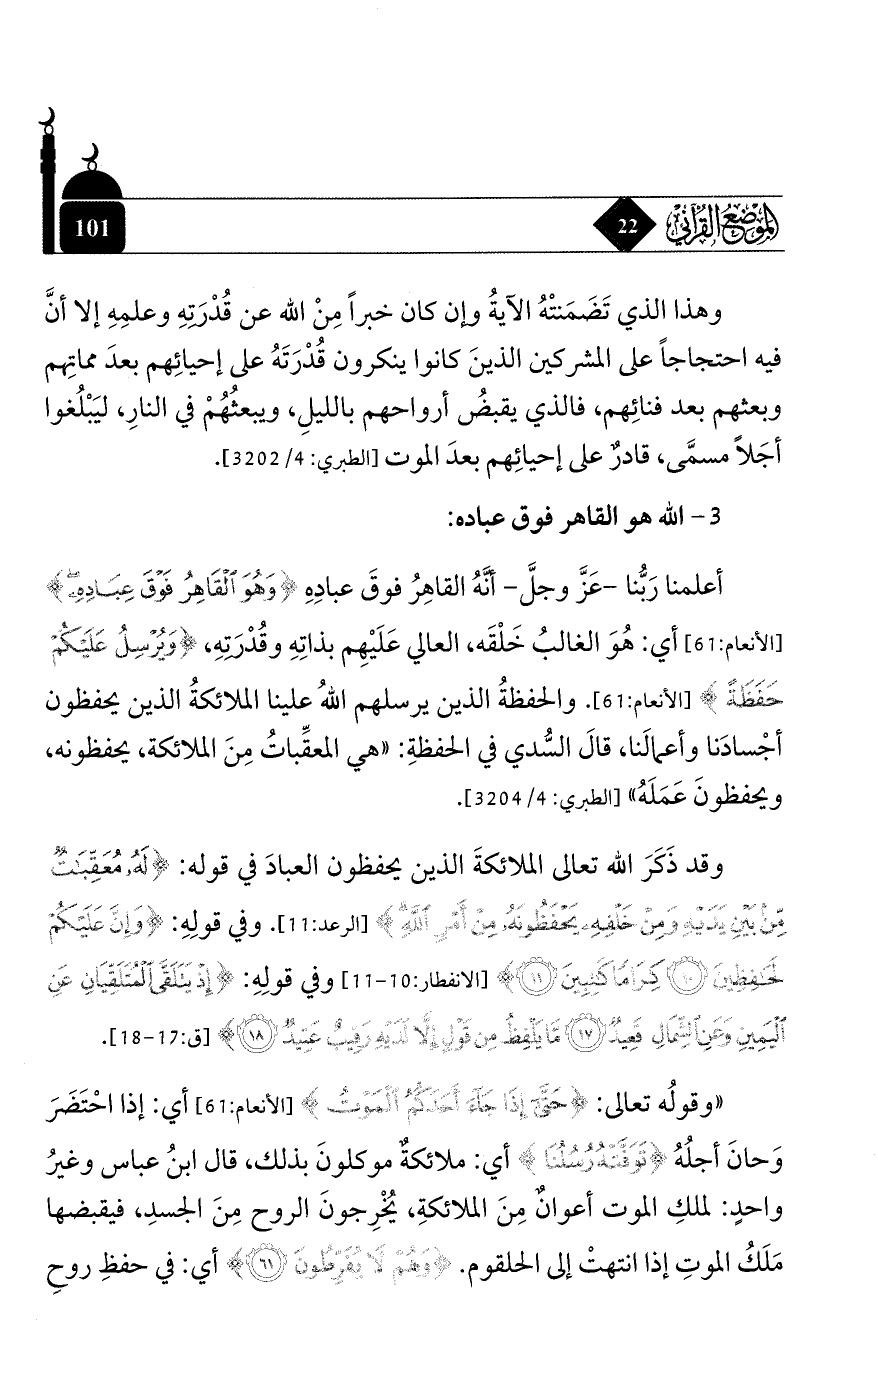 الموضع القرآني 22 101
وهذا الذي تَضَمَنتْهُ الآيةُ وإن كان خبراً مِنْ الله عن قُدْرَتِهِ وعلمِهِ إلا أنَّ
فيه احتجاجاً على المشركين الذينَ كانوا ينكرون قُدْرَتَهُ على إحيائِهم بعدَ مماتِهم
وبعثهم بعد فنائِهم، فالذي يقبضُ أرواحهم بالليلِ، ويبعثُهُمْ في النارِ، ليَبْلُغوا
أجَلاً مسمَّى، قادرٌ على إحيائِهم بعدَ الموت [الطبري: 4/ 3202].
3- الله هو القاهر فوق عباده:
أعلمنا رَبُّنا -عَزَّ وجلَّ- أنَّهُ القاهِرُ فوقَ عبادِهِ ﴿وَهُوَ ٱلْقَاهِرُ فَوْقَ عِبَادِهِۦۖ﴾
[الأنعام:61] أي: هُوَ الغالبُ خَلْقَه، العالي عَلَيْهِم بذاتِهِ وقُدْرَتِهِ، ﴿وَيُرْسِلُ عَلَيْكُمْ
حَفَظَةً﴾ [الأنعام:61]. والحفظةُ الذين يرسلهم اللهُ علينا الملائكةُ الذين يحفظون
أجْسادَنا وأعمالَنا، قالَ السُّدي في الحفظةِ: «هي المعقِّباتُ مِنَ الملائكة، يحفظونه،
ويحفظونَ عَمَلَهُ» [الطبري: 4/ 3204].
وقد ذَكَرَ الله تعالى الملائكةَ الذين يحفظون العبادَ في قوله: ﴿لَهُۥ مُعَقِّبَٰتٌ
مِّنۢ بَيْنِ يَدَيْهِ وَمِنْ خَلْفِهِۦ يَحْفَظُونَهُۥ مِنْ أَمْرِ ٱللَّهِۗ﴾ [الرعد:11]. وفي قولِهِ: ﴿وَإِنَّ عَلَيْكُمْ
لَحَٰفِظِينَ ١٠ كِرَامًا كَٰتِبِينَ ١١﴾ [الانفطار:10-11] وفي قولِهِ: ﴿إِذْ يَتَلَقَّى ٱلْمُتَلَقِّيَانِ عَنِ
ٱلْيَمِينِ وَعَنِ ٱلشِّمَالِ قَعِيدٌ ١٧ مَّا يَلْفِظُ مِن قَوْلٍ إِلَّا لَدَيْهِ رَقِيبٌ عَتِيدٌ ١٨﴾ [ق:17-18].
«وقولُه تعالى: ﴿حَتَّىٰٓ إِذَا جَآءَ أَحَدَكُمُ ٱلْمَوْتُ﴾ [الأنعام:61] أي: إذا احْتَضَرَ
وَحانَ أجلُهُ ﴿تَوَفَّتْهُ رُسُلُنَا﴾ أي: ملائكةٌ موكلونَ بذلك، قال ابنُ عباس وغيرُ
واحدٍ: لملكِ الموت أعوانٌ مِنَ الملائكةِ، يُخْرِجونَ الروح مِنَ الجسدِ، فيقبضها
مَلَكُ الموتِ إذا انتهتْ إلى الحلقوم. ﴿وَهُمْ لَا يُفَرِّطُونَ ٦١﴾ أي: في حفظِ روحِ